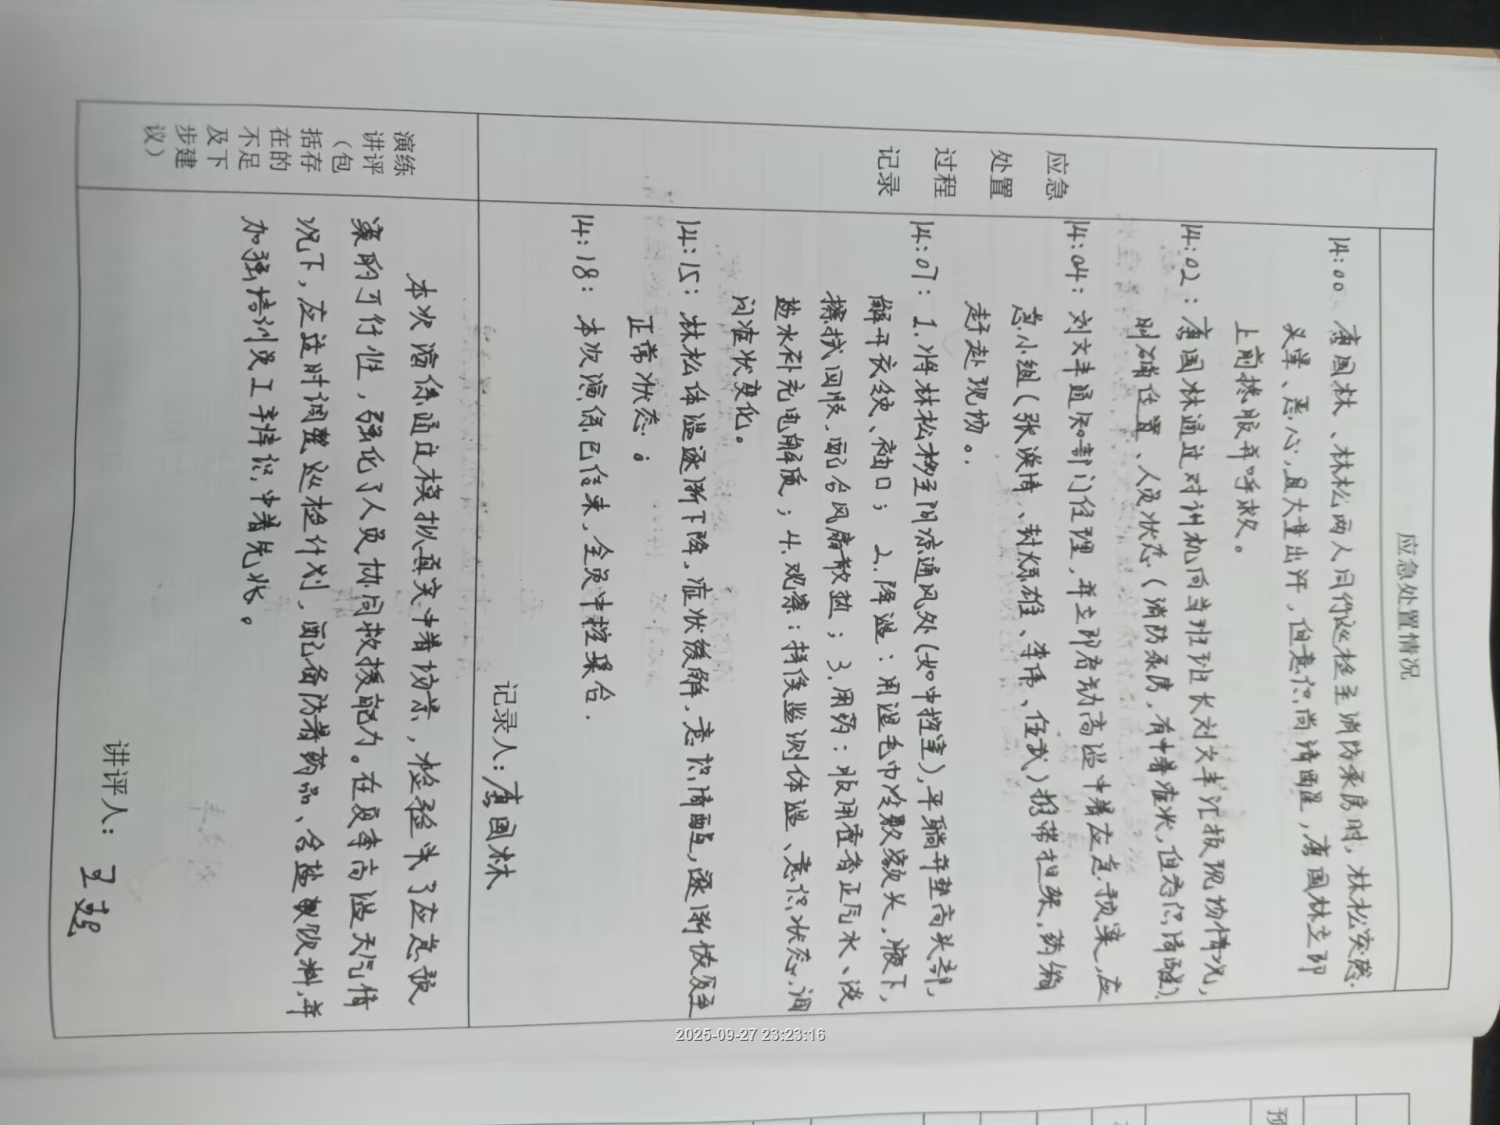 应急处置情况
应急
处置
过程
记录
14:00 唐国林、林松两人同行巡检至消防泵房时，林松突感
头晕、恶心，且大量出汗，但意识尚清醒，唐国林立即
上前搀服并呼救。
14:02：唐国林通过对讲机向当班班长刘文丰汇报现场情况，
明确位置、人员状态（消防泵房，有中暑症状，但意识清醒）.
14:04：刘文丰通知部门经理，并立即启动高温中暑应急预案，应
急小组（张 、封 雄、李伟、任武）携带担架，药箱
赶赴现场。
14:07：1.将林松移至阴凉通风处（如中控室），平躺并垫高头部，
解开衣领、袖口；2.降温：用湿毛巾冷敷额头，腋下，
擦拭四肢，配合风扇散热；3.用药：服用藿香正气水、淡
盐水补充电解质；4.观察：持续监测体温、意识状态，询
问症状变化。
14:15：林松体温逐渐下降，症状缓解，意识清醒，逐渐恢复至
正常状态。
14:18：本次演练已结束，全员中控集合.
记录人：唐国林
演练
讲评
（包
括存
在的
不足
及下
步建
议）
本次演练通过模拟真实中暑场景，检验了应急预
案的可行性，强化了人员协同救援能力。在夏季高温天气情
况下，应适时调整巡检计划，配备防暑药品、含盐饮料，并
加强培训员工辨识中暑先兆。
讲评人：
2025-09-27 23:23:16
预